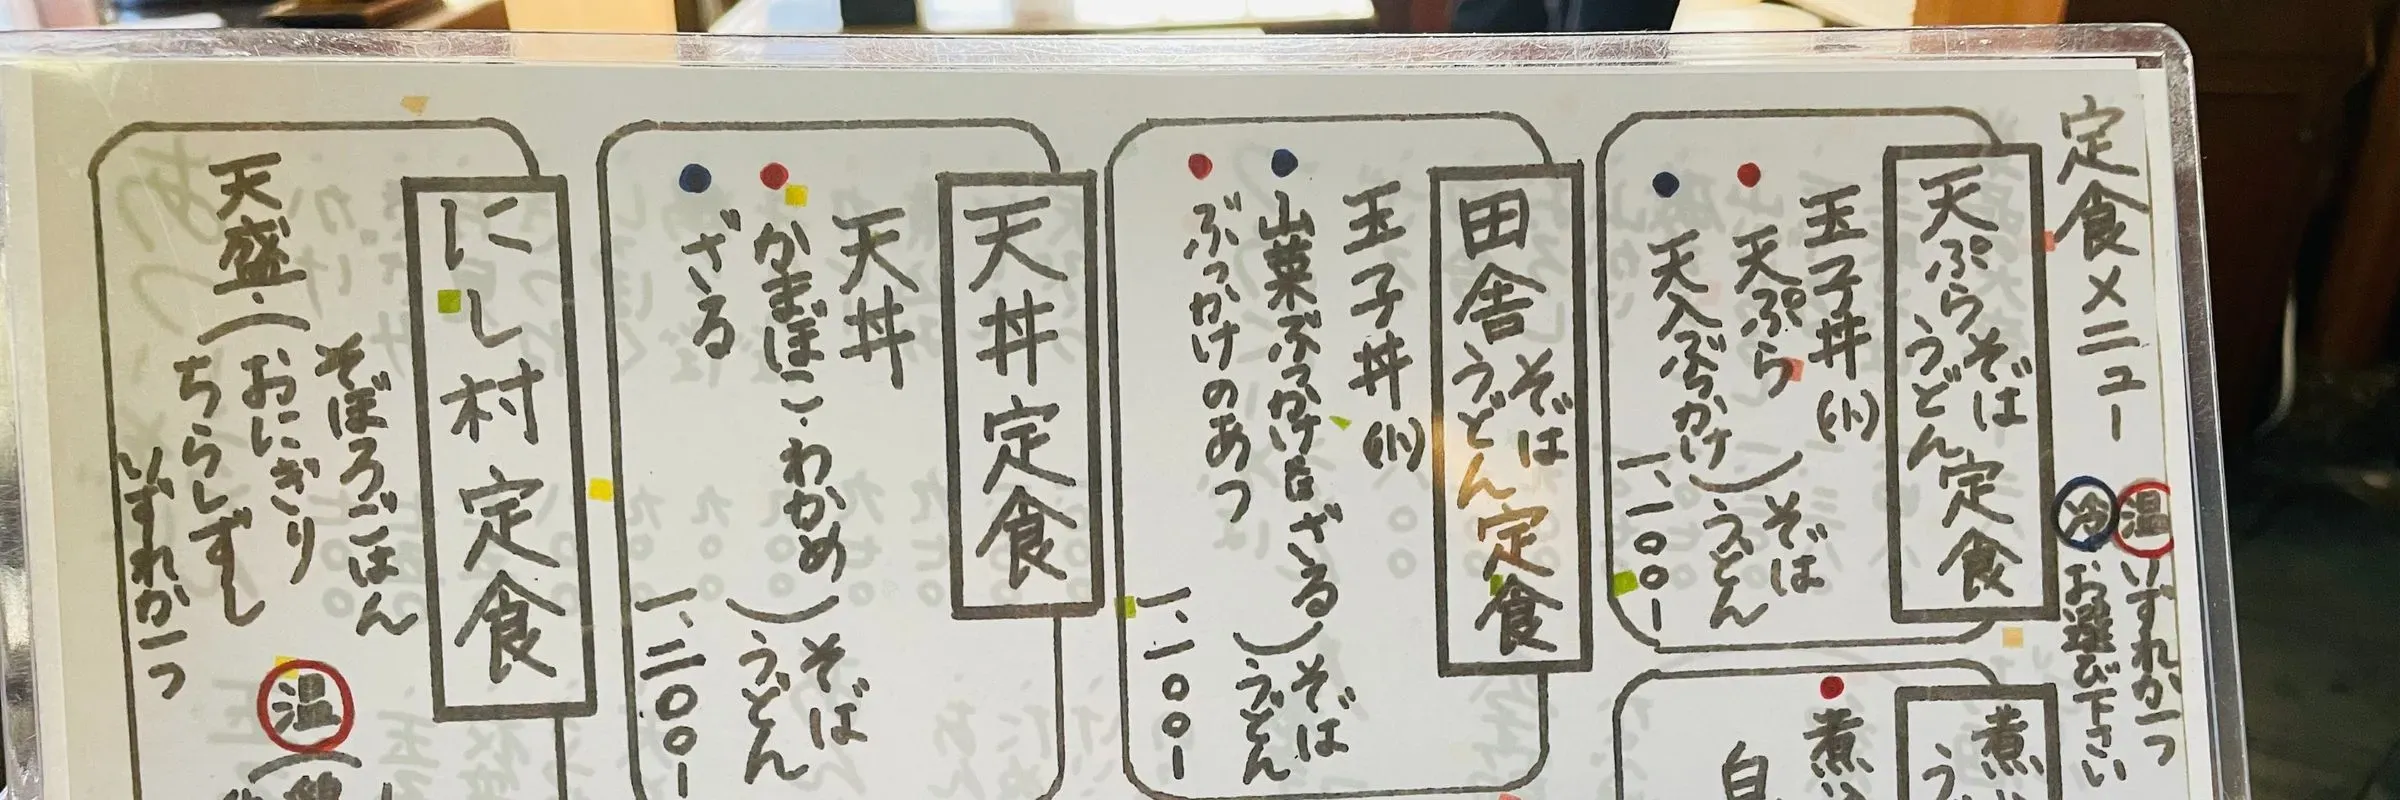 定食メニュー
温
冷
いずれか一つ
お選び下さい
天ぷらそば
うどん
定食
玉子丼(小)
天ぷら
天入ぶっかけ
そば
うどん
一、一〇〇-
煮
う
煮
白
田舎そば
うどん
定食
玉子丼(小)
山菜ぶっかけ
ざる
ぶっかけのあつ
そば
うどん
一、一〇〇-
天丼定食
天丼
かまぼこ・わかめ
ざる
そば
うどん
一、二〇〇-
にし村定食
天盛・
そぼろごはん
おにぎり
ちらしずし
いずれか一つ
温